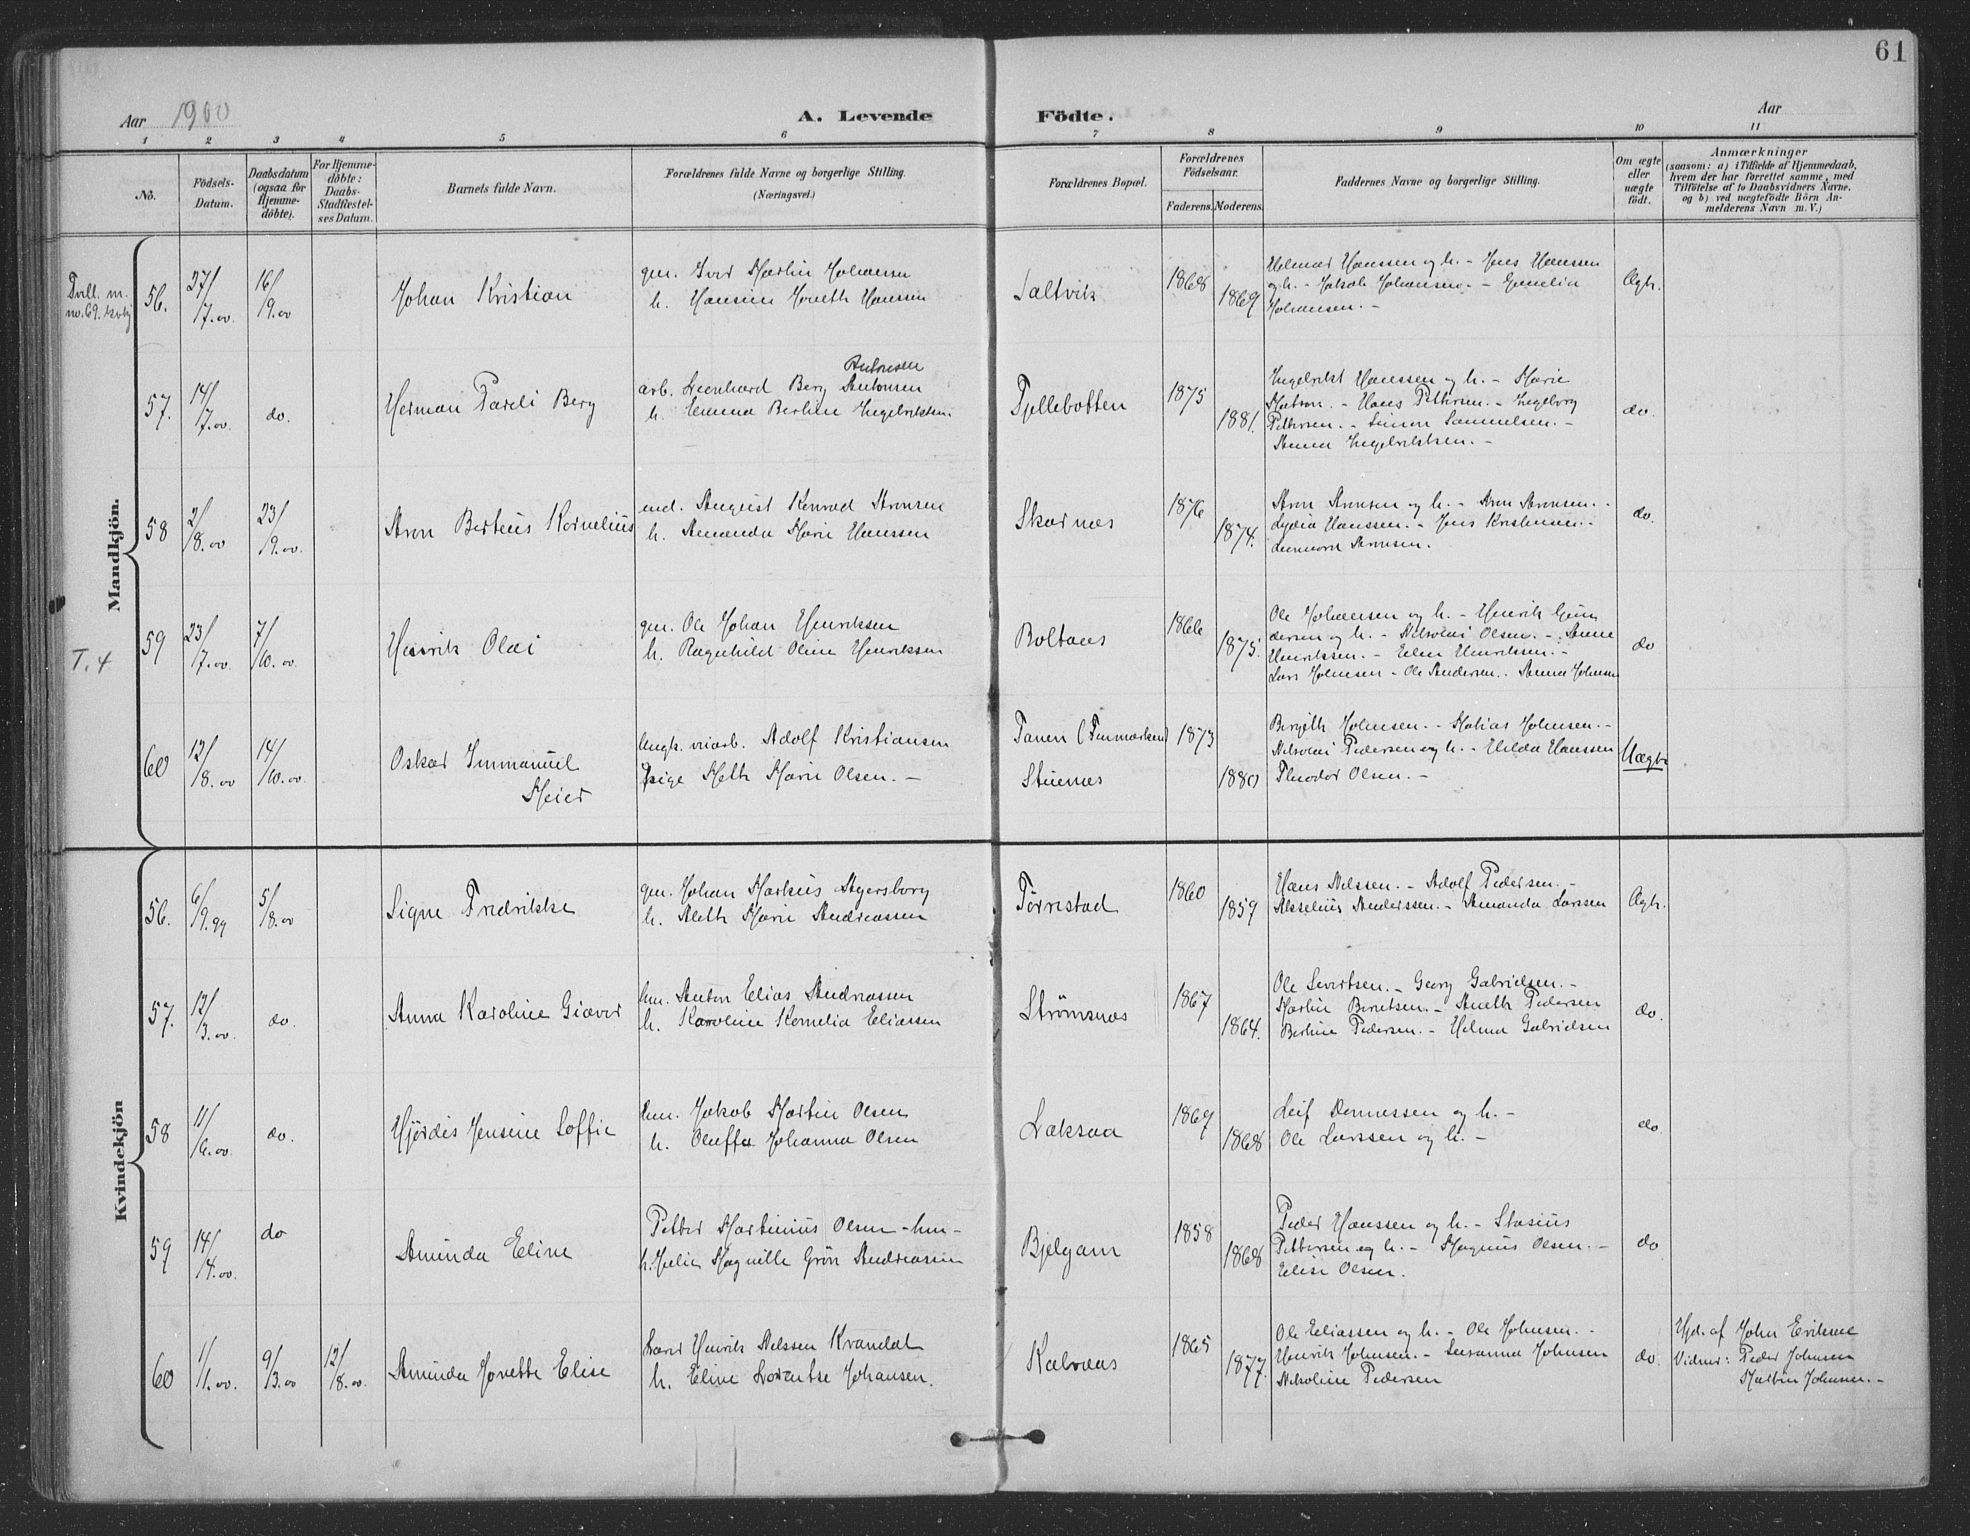 61
Aar 1900
A. Levende
Födte.
Aar
1 2 3 4 5 6 7 8 9 10 11
No.
Födsels-
Datum.
Daabsdatum
(ogsaa for
Hjemme-
döbte).
For Hjemme-
döbte:
Daabs-
Stadfæstel-
ses Datum.
Barnets fulde Navn.
Forældrenes fulde Navne og borgerlige Stilling.
(Næringsvei.)
Forældrenes Bopæl.
Forældrenes
Födselsaar.
Faderens. Moderens.
Faddernes Navne og borgerlige Stilling.
Om ægte
eller
uægte
födt.
Anmærkninger
(saasom: a) i Tilfælde af Hjemmedaab,
hvem der har forrettet samme, med
Tilföielse af to Daabsvidners Navne,
og b) ved uægtefödte Börn An-
melderens Navn m. V.)
Mandkjön.
Tvill. m.
no. 69.
56.
27/
7.00
16/
9.00
Johan Kristian
gm. Iver Martin Johansen
h. Hansine Hanssen
Saltvik
1868
1869
Helmer Hanssen og h. - Jens Hanssen
og h. - Jakob Johansen. - Emelia
Johansen. -
Ægte.
57.
14/
7.00.
do.
Herman Pareli Berg
Antonsen
arb. Leonhard Berg Antonsen
h. Emma Berline Ingebriktsen.
Fjellebotten
1875
1881.
Ingebrikt Hanssen og h. - Marie
Matson. - Hans Pettersen. - Ingeborg
Pettersen. - Simon Samuelsen. -
Anna Ingebriktsen. -
do.
58
2/
8.00
23/
9.00.
Aron Berteus Kornelius
ind. August Konrad Aronsen
h. Amanda Marie Hanssen
Skarnes
1876
1874.
Aron Aronsen og h. - Aron Aronsen. -
Lydia Hanssen. - Jens Kristensen. -
Leonard Aronsen.
do.
T. 4
59
23/
7.00.
7/
10.00.
Henrik Olai
gm. Ole Johan Henriksen
h. Ragnhild Oline Henriksen
Boltaas
1866
1875.
Ole Johansen og h. - Henrik Gun
dersen og h. - Nikolai Olsen. - Anne
Henriksen. - Elen Henriksen. -
Lars Johnsen - Ole Andersen. Anna Johnsen
do
60
12/
8.00
14/
10.00.
Oskar Immanuel
Meier
Ungk. Adolf Kristiansen
Pige Meth Marie Olsen. -
Tanen (Finmarken)
Stuenæs
1873
1880
Bergith Johnsen. - Matias Johnsen. -
Nikolai Pedersen og h. - Hilda Hanssen
Theodor Olsen. -
Uægte
Kvindekjön
56.
6/
9.99
5/
8.00
Signe Fredrikke
gm. Johan Markus Agersborg
h. Aleth Marie Andreassen
Tørrestad
1860
1859
Hans Nilssen. - Adolf Pedersen. -
Akselius Anderssen. - Amanda Larssen
Ægte.
57.
12/
3.00.
do.
Anna Karoline Giæver
hm. Anton Elias Andreassen
h. Karoline Kornelia Eliassen
Strømsnæs
1867
1864.
Ole Sivertsen. - Georg Gabrielsen. -
Martin Berntsen. - Aneth Pedersen
Berline Pedersen. - Helma Gabrielsen
do.
58
11/
6.00.
do.
Hjørdis Jensine Soffie
hm. Jakob Martin Olsen
h. Oluffa Johanna Olsen
Laksaa
1869
1868
Leif Dennessen og h. -
Ole Larssen og h. -
do.
59
14/
4.00.
do
Aminda Eline
Petter Martinius Olsen - hm -
h. Julie Magnille Grön Andreassen
Bjelgam
1858
1868
Peder Hanssen og h. - Stasius
Pettersen og h. - Magnus Olsen. -
Elise Olsen.
do
60
1/
1.00.
9/
3.00
12/
8.00.
Aminda Jonette Elise
Henrik Nilssen Kvandal
h. Eline Lorentse Johansen.
Kalvaas
1865
1877.
Ole Eliassen og h. - Ole Johnsen. -
Henrik Johnsen. - Susanna Johnsen
Nikoline Pedersen
do.
Hjd. af John Eriksen
Vidner: Peder Johnsen
Martin Johnsen. -